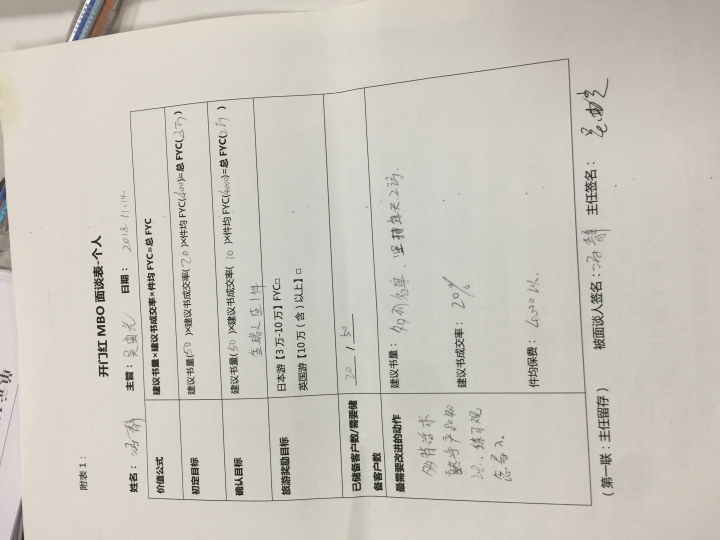 附表 1：
开门红 MBO 面谈表-个人
姓名： 冯静 主管： 日期： 2018.11.14.
价值公式 建议书量×建议书成交率×件均 FYC=总 FYC
初定目标 建议书量(50)×建议书成交率(20)×件均 FYC(400)=总 FYC( )
确认目标 建议书量(50)×建议书成交率(10)×件均 FYC(4000)=总 FYC(2万)
1件
旅游奖励目标 日本游【3 万-10 万】FYC□
英国游【10 万（含）以上】□
已储备客户数/需要储
备客户数 20 / 50
最需要改进的动作
建议书量： 坚持每天2访.
建议书成交率： 20%
件均保费： 4000以.
（第一联：主任留存） 被面谈人签名：冯静 主任签名：